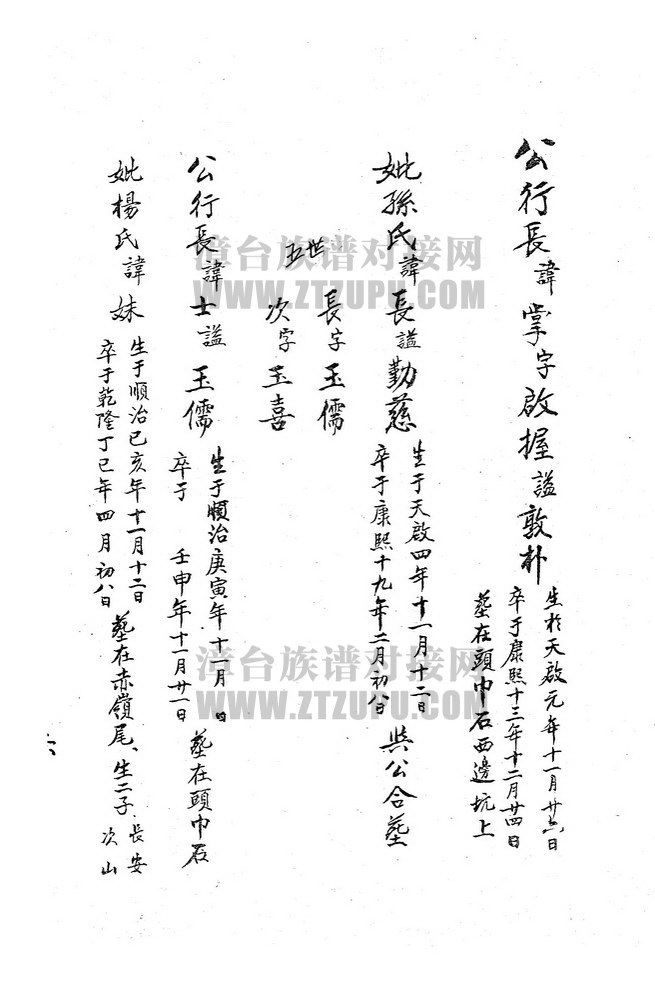 公行長諱掌字啟握謚敦朴
生於天啟元年十一月廿六日
卒于康熙十三年十二月廿四日
墓在頭巾石西邊坑上
妣孫氏諱長謚勤慈
生于天啟四年十一月十二日
卒于康熙十九年二月初八日
與公合墓
五世
長字玉儒
次字玉喜
公行長諱士謚玉儒
生于順治庚寅年十一月 日
卒于 壬申年十一月廿一日
墓在頭巾石
妣楊氏諱妹
生于順治己亥年十一月十二日
卒于乾隆丁巳年四月初八日
墓在赤嶺尾、生二子
長安
次山
六
漳台族谱对接网
WWW.ZTZUPU.COM
漳台族谱对接网
WWW.ZTZUPU.COM